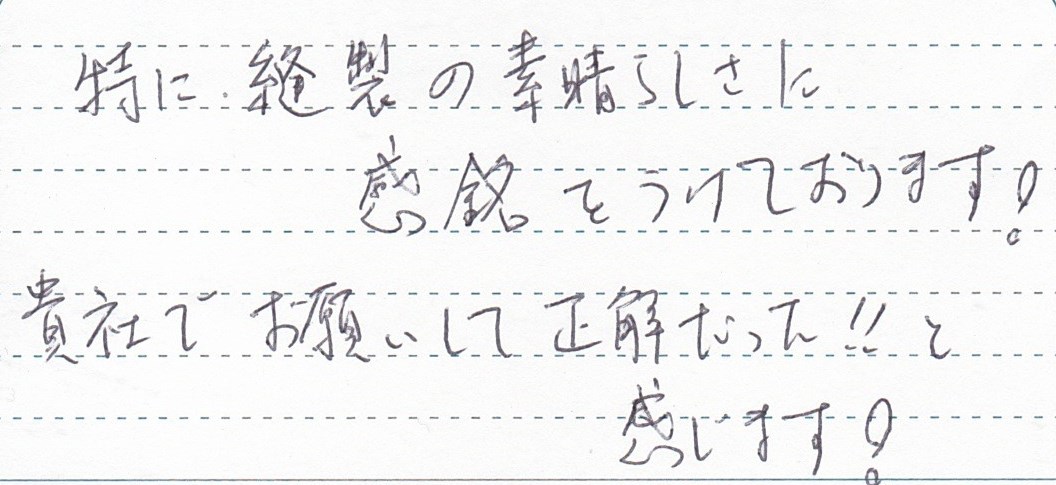 特に縫製の素晴らしさに
感銘をうけております!
貴社でお願いして正解だった!!と
感じます!